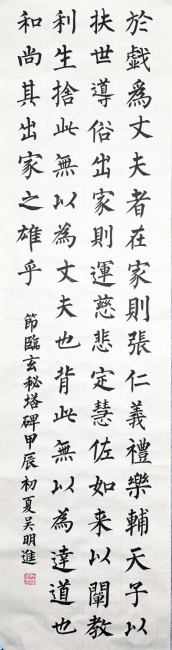 於戲為丈夫者在家則張仁義禮樂輔天子以
扶世導俗出家則運慈悲定慧佐如来以闡教
利生捨此無以為丈夫也背此無以為達道也
和尚其出家之雄乎
節臨玄秘塔碑甲辰初夏吴明進